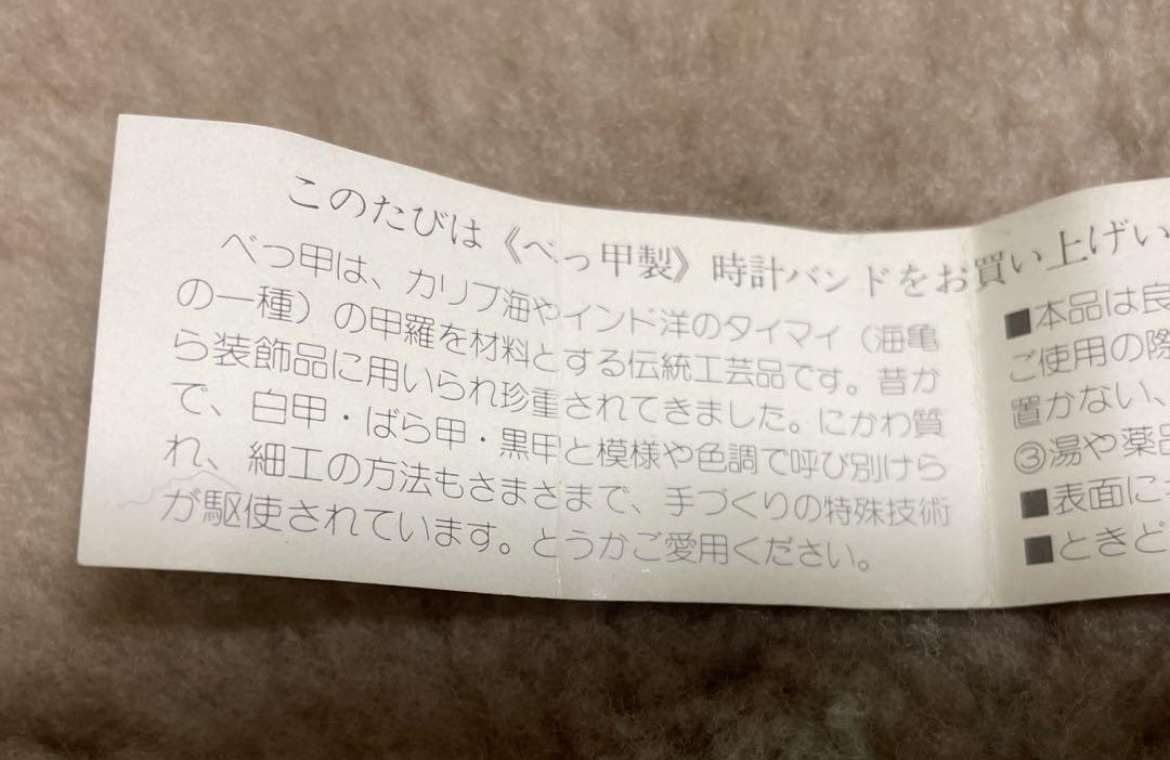 このたびは《べっ甲製》時計バンドをお買い上げい
べっ甲は、カリブ海やインド洋のタイマイ（海亀
の一種）の甲羅を材料とする伝統工芸品です。昔か
ら装飾品に用いられ珍重されてきました。にかわ質
で、白甲・ばら甲・黒甲と模様や色調で呼び別けら
れ、細工の方法もさまさまで、手づくりの特殊技術
が駆使されています。とうかご愛用ください。
■本品は良
ご使用の際
置かない、
③湯や薬品
■表面に
■ときど